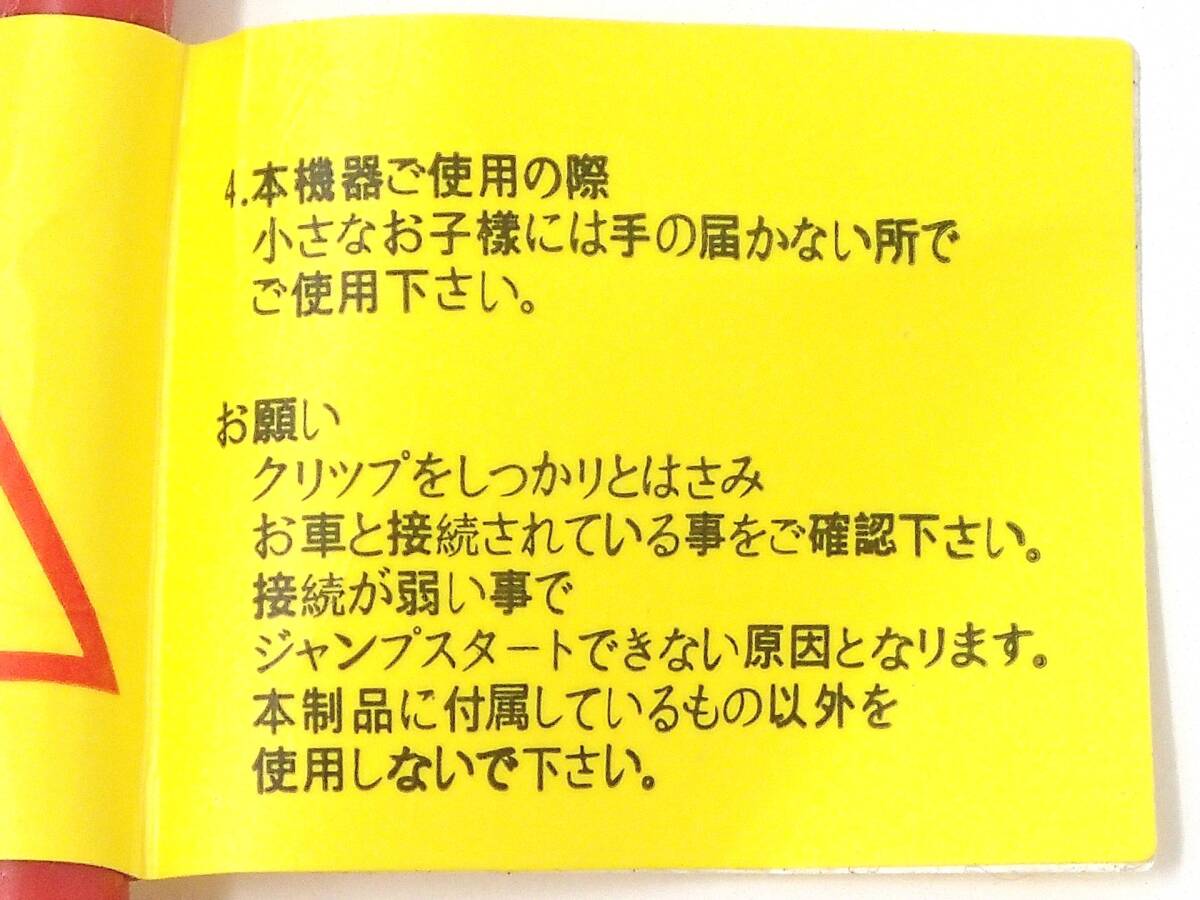 4.本機器ご使用の際
小さなお子様には手の届かない所で
ご使用下さい。
お願い
クリップをしつかりとはさみ
お車と接続されている事をご確認下さい。
接続が弱い事で
ジャンプスタートできない原因となります。
本制品に付属しているもの以外を
使用しないで下さい。